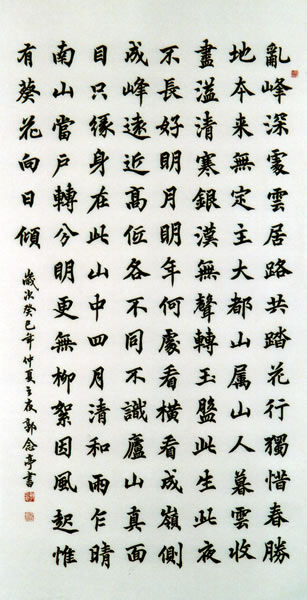 亂峰深處雲居路共踏花行獨惜春勝
地本來無定主大都山屬山人暮雲收
盡溢清寒銀漢無聲轉玉盤此生此夜
不長好明月明年何處看橫看成嶺側
成峰遠近高低各不同不識廬山真面
目只緣身在此山中四月清和雨乍晴
南山當戶轉分明更無柳絮因風起惟
有葵花向日傾
歲次癸巳年仲夏之夜郭念亭書